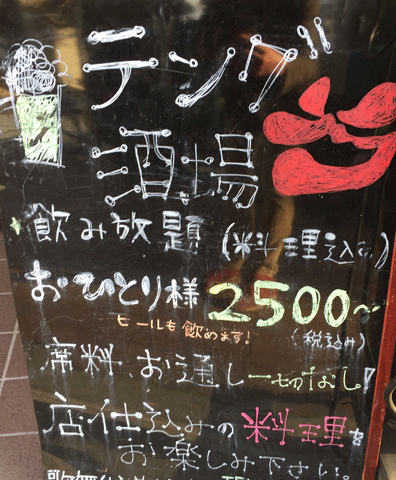 テング
酒場
飲み放題(料理込む)
おひとり様 2500〜
ビールも飲めます! (税込み)
席料、お通し一切なし!
店仕込みの料理を
お楽しみ下さい。